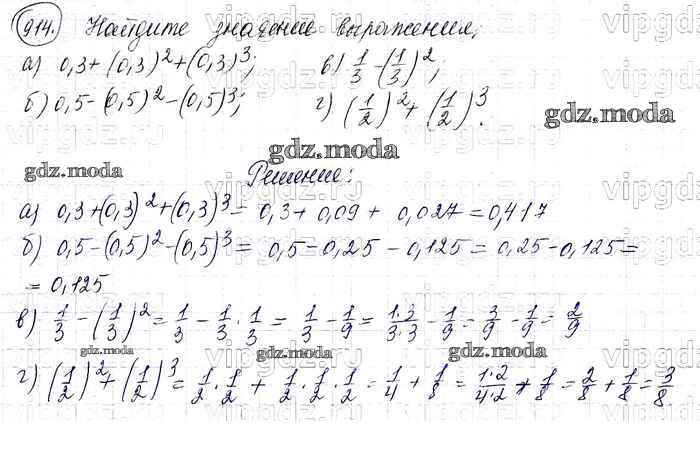 914. Найдите значение выражения:
а) 0,3+(0,3)²+(0,3)³; в) 1/3-(1/3)²;
б) 0,5-(0,5)²-(0,5)³; г) (1/2)²+(1/2)³.
gdz.moda
gdz.moda
gdz.moda
Решение:
а) 0,3+(0,3)²+(0,3)³= 0,3+0,09+ 0,027=0,417
б) 0,5-(0,5)²-(0,5)³= 0,5-0,25-0,125=0,25-0,125=
= 0,125
в) 1/3-(1/3)²=1/3-1/3·1/3=1/3-1/9=1·3/3·3-1/9=3/9-1/9=2/9
gdz.moda
gdz.moda
gdz.moda
г) (1/2)²+(1/2)³=1/2·1/2+1/2·1/2·1/2=1/4+1/8=1·2/4·2+1/8=2/8+1/8=3/8